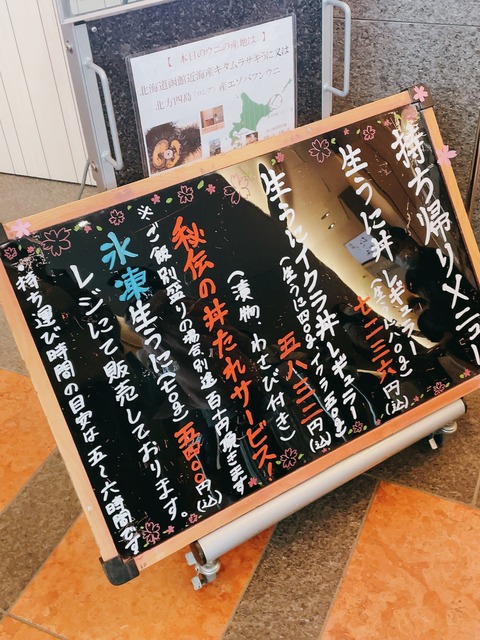 【 本日のウニの産地は 】
北海道函館近海産キタムラサキうに又は
北方四島(ロシア)産エゾバフンウニ
持ち帰りメニュー
生うに丼 レギュラー
七二三六円(込)
生うにイクラ丼 レギュラー
(生うに四〇g イクラ五〇g)
五八三二円(込)
(漬物・わさび付き)
秘伝の丼たれサービス!
※ご飯別盛りの場合別途 百十円頂きます
氷凍生うに(七〇g) 五四〇〇円(込)
レジにて販売しております。
持ち運び時間の目安は五〜六時間です